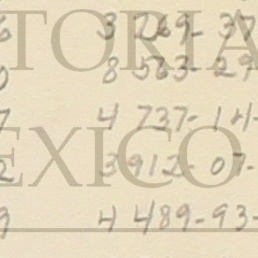 6 3 269-37
TORIA
0 8 563-29
7 4 737-14-
EXICO
2 3 912-07-
9 4 489-93-